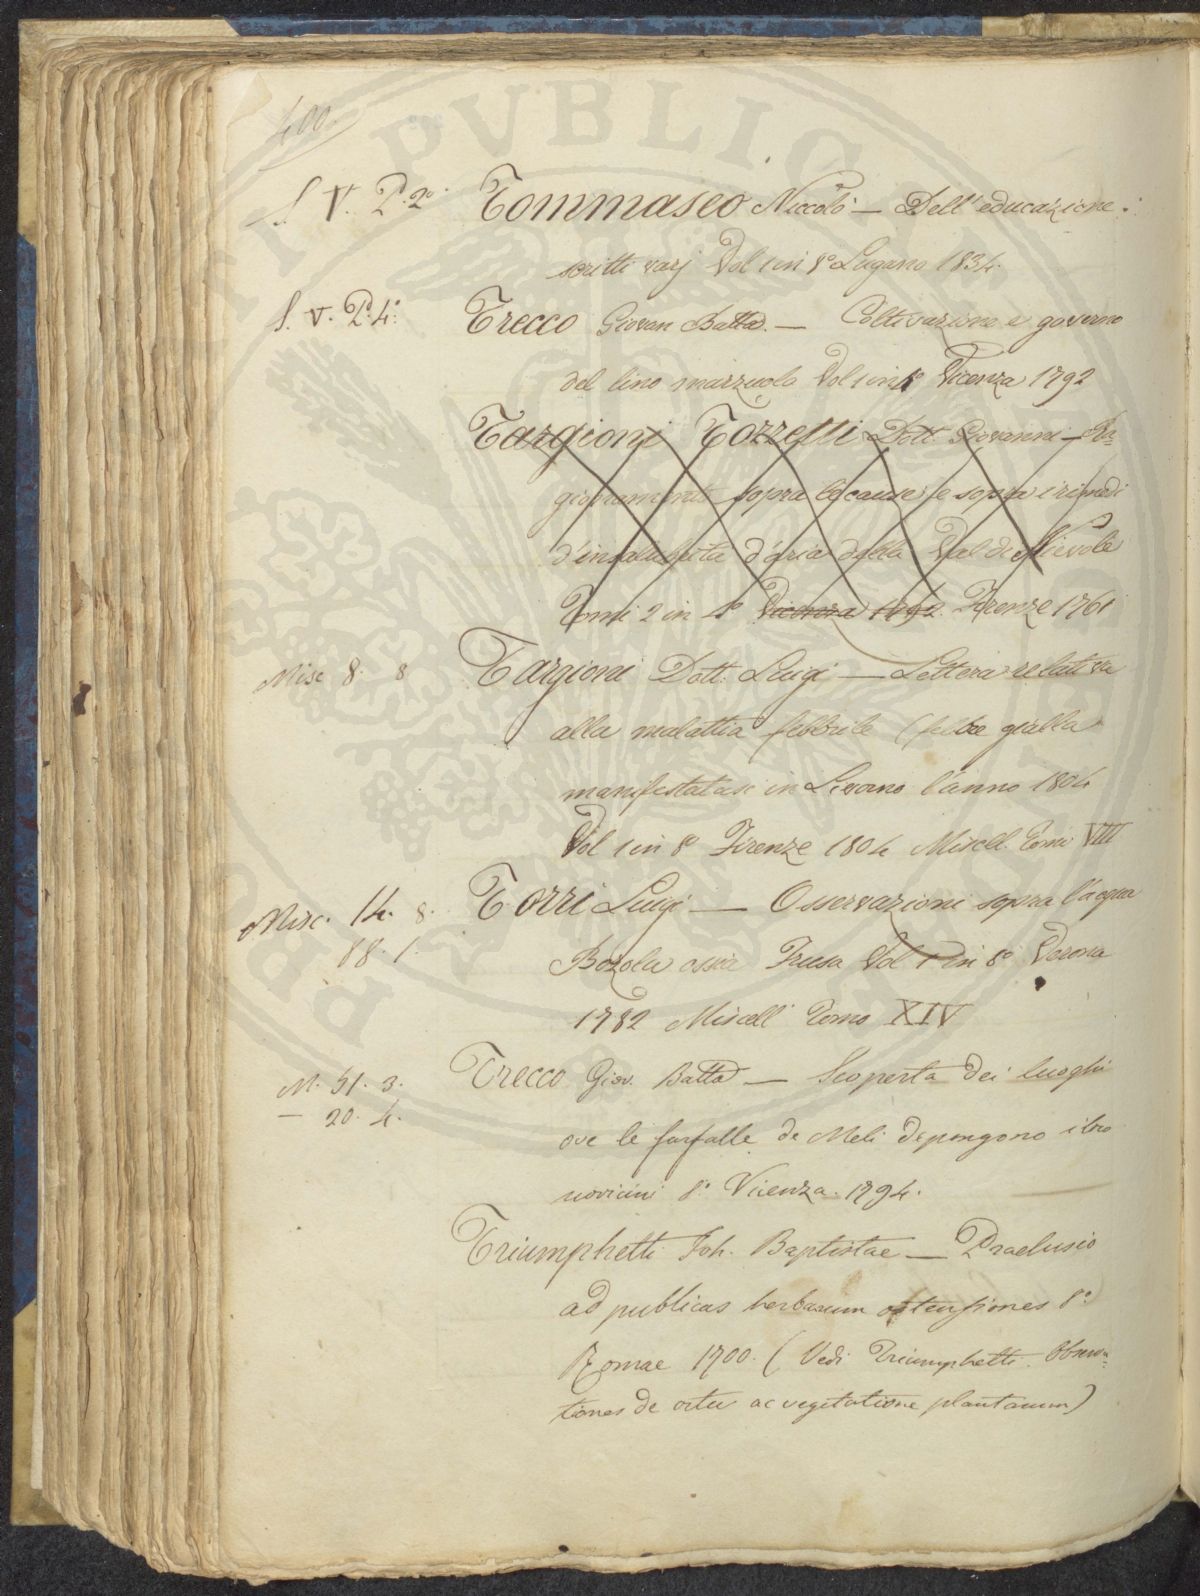 400.
S. V. P. 2° Tommaseo Niccolò — Dell'educazione.
scritti varj Vol 1 in 8° Lugano 1834.
S. V. P. 4° Trecco Giovan Batta. — Coltivazione e governo
del lino marzuolo Vol 1 in 8° Vicenza 1792
Targioni Tozzetti Dott Giovanni — Ra=
gionamento sopra le cause e sopra i rimedi
d'insalubrita d'aria della Val di Nievole
Tomi 2 in 4° Vicenza 1792. Firenze 1761
Misc 8. 8 Targioni Dott. Luigi — Lettera relativa
alla malattia febbrile (febbre gialla
manifestatasi in Livorno l'anno 1804
Vol 1 in 8° Firenze 1804 Miscell. Tomo VIII
Misc. 14. 8. Torri Luigi — Osservazioni sopra l'acqua
88. 1. Bozola ossia Vol 1 in 8° Verona
1782 Miscell Tomo XIV
M. 51. 3. Trecco Giov. Batta — Scoperta dei luoghi
— 20. 4. ove le farfalle de Meli depongono i loro
novicini 8.° Vicenza. 1794.
Triumphetti Joh. Baptistae — Praelusio
ad publicas herbarum ostensiones 8.°
Romae 1700. (Vedi Triumphetti. Observa=
tiones de ortu ac vegetatione plantarum)
PVBLICAE